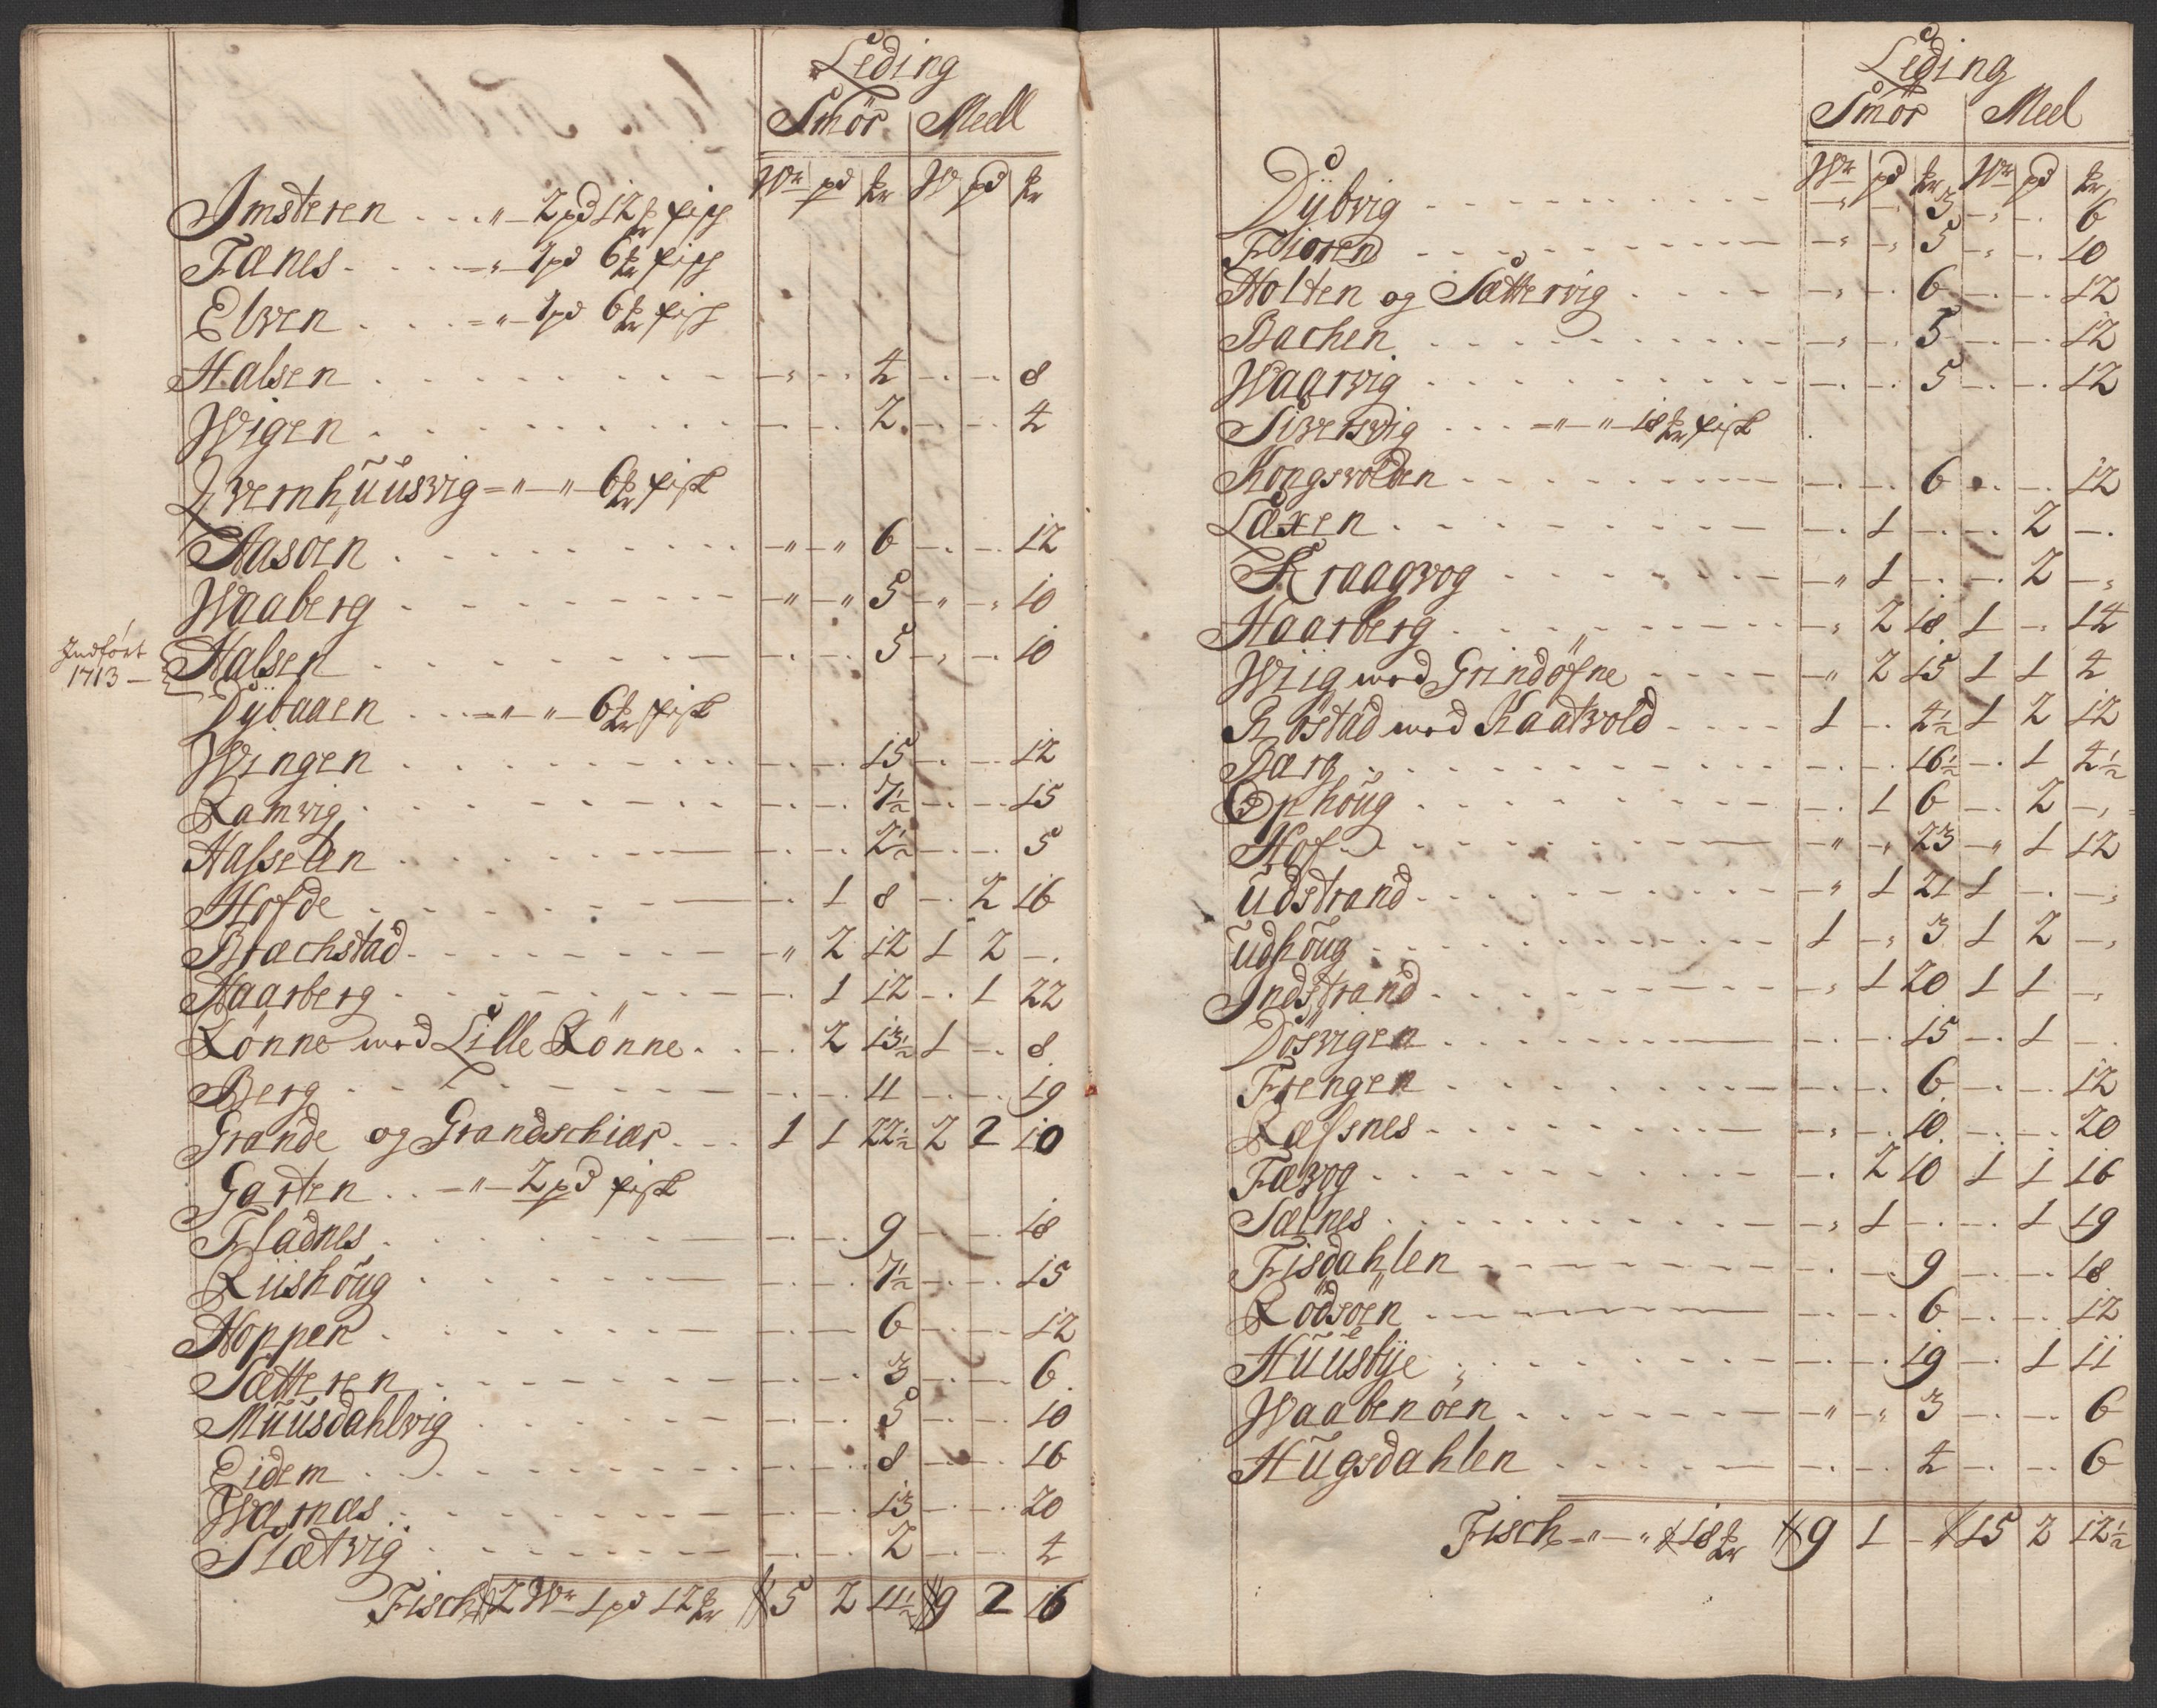 Leding
Smör Meell
Wr pd W pd
Imsteren . . . „ 2 pd 12 fisch
Fænes . . . . „ 1 pd 6 fisch
Elven . . . „ 1 pd 6 fisch
Halsen . . . 4 8
Wigen . . . 2 4
Qvernhuusvig = „ — „ — 6 fisk
Aasöen . . . „ „ 6 12
Waaberg . . . „ „ 5 „ „ 10
Indført
1713 — Halsen . . . 5 10
Dÿbaaen . . . „ „ 6 fisk
Wingen . . . 15 12
Ramvig . . . 7½ 15
Hasselen . . . 2½ 5
Hofde . . . 1 8 2 16
Brachstad . . . „ 2 12 1 2 —
Haarberg . . . 1 12 1 22
Rönne med Lille Rönne . . 2 13½ 1 8
Berg . . . 11 19
Grande og Grandschiær . . . 1 1 22½ 2 2 10
Garten . . — „ — 2 pd fisk
Fladnes . . . 9 18
Riishöug . . . 7½ 15
Hopper . . . 6 12
Sætteren . . . 3 6
Muusdahlvig . . . 5 10
Eidem . . . 8 16
Warnæs . . . 13 20
Slætvig . . . 2 4
Fisch 2 Wr 1 pd 12 5 2 11½ 9 2 16
Leding
Smör Meel
Wr pd Wr pd
Dÿbvig . . . 3 6
Fioren . . . 5 10
Holten og Sættervig . . . 6 12
Bachen . . . 5 12
Waarvig . . . 5 12
Siversvig . . . „ „ 18 fisk
Kongsvolden . . . 6 12
Laxen . . . 1 2
Kraagvog . . . „ 1 2
Haarberg . . . 2 18 1 14
Wiig med Grindöfne . . . „ 2 15 1 1 4
Röstad med Kaatvold . . . 1 4½ 1 2 12
Berg . . . 16½ 1 4½
Ophöug . . . 1 6 2
Hof . . . „ „ 23 „ 1 12
Udstrand . . . „ 1 21 1
Udhöug . . . 1 3 1 2
Indstrand . . . 1 20 1 1
Dösvigen . . . 15 1
Frengen . . . 6 12
Ræfsnes . . . 10 20
Fævog . . . 2 10 1 1 16
Sælnes . . . 1 1 19
Fisdahlen . . . 9 18
Rödsöen . . . 6 12
Huusbÿe . . . 19 1 11
Waabenöen . . . „ „ 3 6
Hugsdahlen . . . 4 6
Fisch = „ — „ 18 9 1 — 15 2 12½